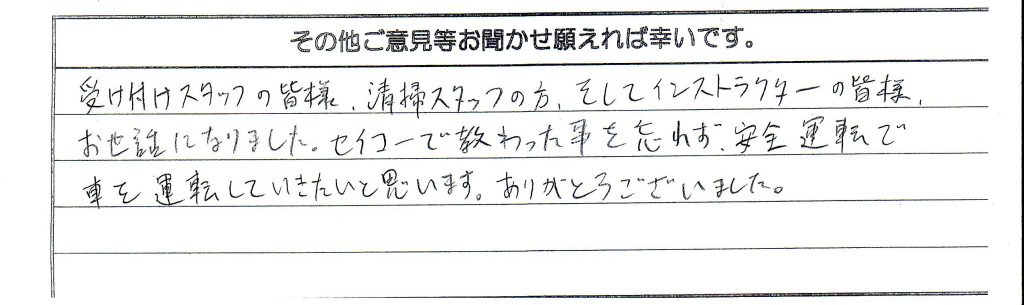 その他ご意見等お聞かせ願えれば幸いです。
受け付けスタッフの皆様、清掃スタッフの方、そしてインストラクターの皆様、
お世話になりました。セイコーで教わった事を忘れず、安全運転で
車を運転していきたいと思います。ありがとうございました。